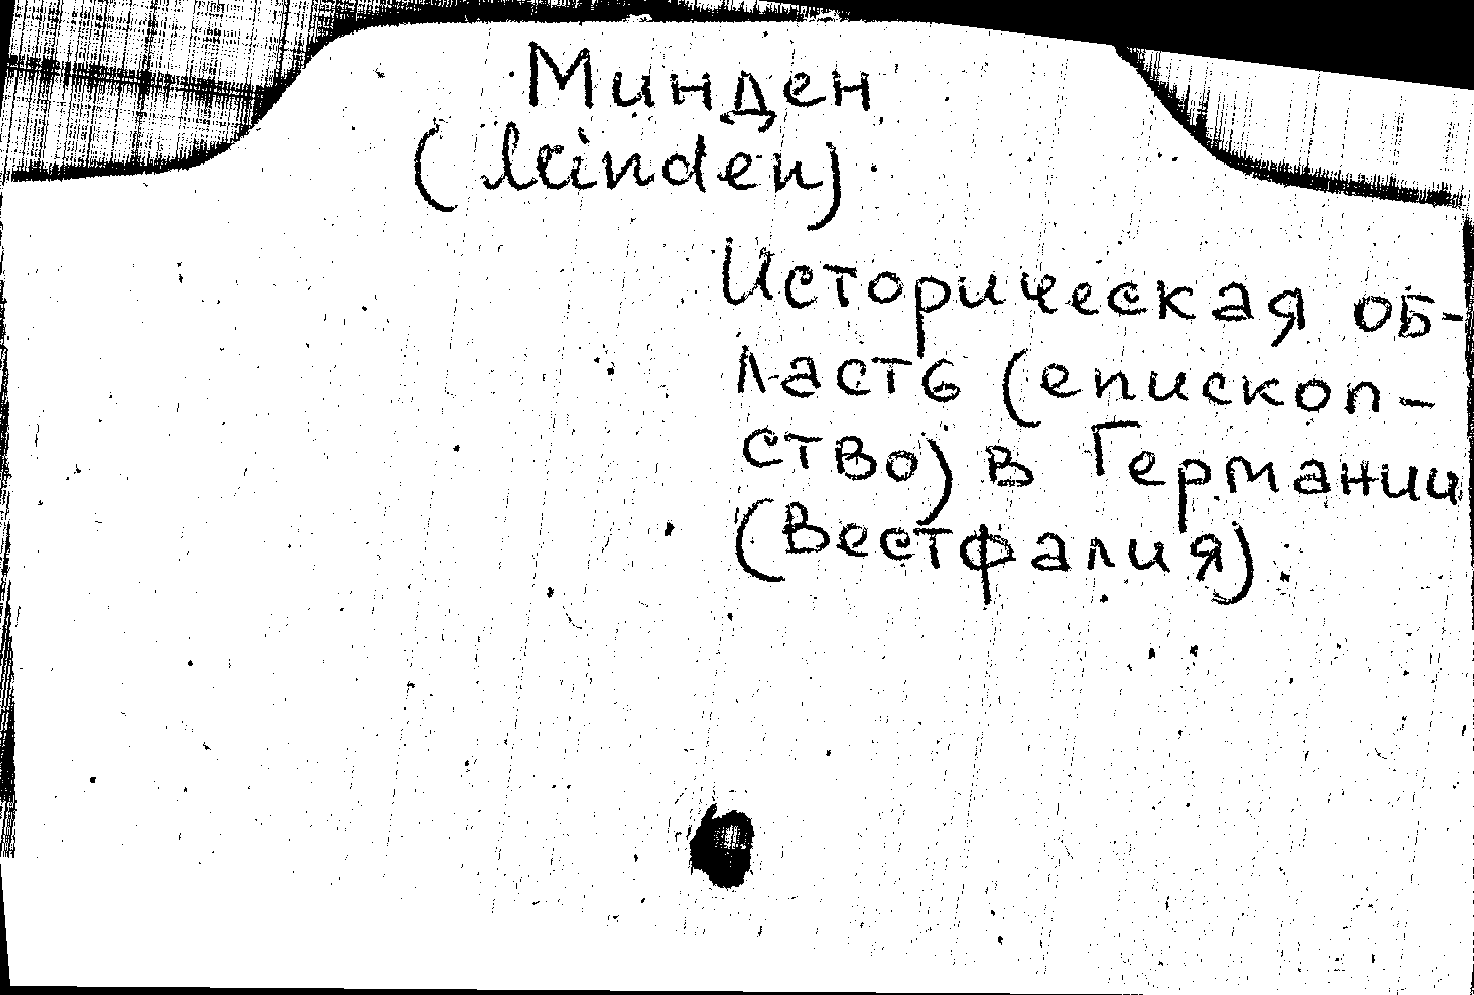 Минден
(Minden)
Историческая об-
ласть (епископ-
ство) в Германии
(Вестфалия)